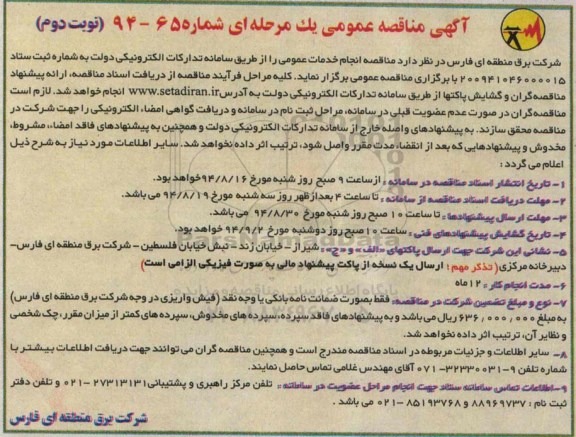 آگهی مناقصه عمومی یك مرحله ای شماره ۶۵ - ۹۴ (نوبت دوم)
شرکت برق منطقه ای فارس در نظر دارد مناقصه انجام خدمات عمومی را از طریق سامانه تدارکات الکترونیکی دولت به شماره ثبت ستاد
۲۰۰۹۴۱۰۴۶۰۰۰۰۱۵ با برگزاری مناقصه عمومی برگزار نماید. کلیه مراحل فرآیند مناقصه از دریافت اسناد مناقصه، ارائه پیشنهاد
مناقصه‌گران و گشایش پاکتها از طریق سامانه تدارکات الکترونیکی دولت به آدرس www.setadiran.ir انجام خواهد شد. لازم است
مناقصه‌گران در صورت عدم عضویت قبلی در سامانه، مراحل ثبت نام در سامانه و دریافت گواهی امضاء الکترونیکی را جهت شرکت در
مناقصه محقق سازند. به پیشنهادهای واصله خارج از سامانه تدارکات الکترونیکی دولت و همچنین به پیشنهادهای فاقد امضاء، مشروط،
مخدوش و پیشنهادهایی که بعد از انقضاء مدت مقرر واصل شود، ترتیب اثر داده نخواهد شد. سایر اطلاعات مورد نیاز به شرح ذیل
اعلام می گردد :
۱- تاریخ انتشار اسناد مناقصه در سامانه : از ساعت ۹ صبح روز شنبه مورخ ۹۴/۸/۱۶ خواهد بود.
۲- مهلت دریافت اسناد مناقصه از سامانه : تا ساعت ۴ بعدازظهر روز سه شنبه مورخ ۹۴/۸/۱۹ می باشد.
۳- مهلت ارسال پیشنهادها : تا ساعت ۱۰ صبح روز شنبه مورخ ۹۴/۸/۳۰ می باشد.
۴- تاریخ گشایش پیشنهادهای فنی : ساعت ۱۰ صبح روز دوشنبه مورخ ۹۴/۹/۲ خواهد بود.
۵- نشانی این شرکت جهت ارسال پاکتهای «الف» و «ج» : شیراز - خیابان زند - نبش خیابان فلسطین - شرکت برق منطقه ای فارس-
دبیرخانه مرکزی (تذکر مهم : ارسال یک نسخه از پاکت پیشنهاد مالی به صورت فیزیکی الزامی است)
۶- مدت انجام کار : ۱۲ ماه
۷- نوع و مبلغ تضمین شرکت در مناقصه: فقط بصورت ضمانت نامه بانکی یا وجه نقد (فیش واریزی در وجه شرکت برق منطقه ای فارس)
به مبلغ ۶۳۶,۰۰۰,۰۰۰ ریال می باشد و به پیشنهادهای فاقد سپرده، سپرده های مخدوش، سپرده های کمتر از میزان مقرر، چک شخصی
و نظایر آن، ترتیب اثر داده نخواهد شد.
۸- سایر اطلاعات و جزئیات مربوطه در اسناد مناقصه مندرج است و همچنین مناقصه گران می توانند جهت دریافت اطلاعات بیشتر با
شماره تلفن ۹-۳۲۳۳۰۰۳۱-۰۷۱ آقای مهندس غلامی تماس حاصل نمایند.
۹- اطلاعات تماس سامانه ستاد جهت انجام مراحل عضویت در سامانه : تلفن مرکز راهبری و پشتیبانی ۲۷۳۱۳۱۳۱-۰۲۱ و تلفن دفتر
ثبت نام ۸۸۹۶۹۷۳۷ و ۸۵۱۹۳۷۶۸-۰۲۱ می باشد .
شرکت برق منطقه ای فارس